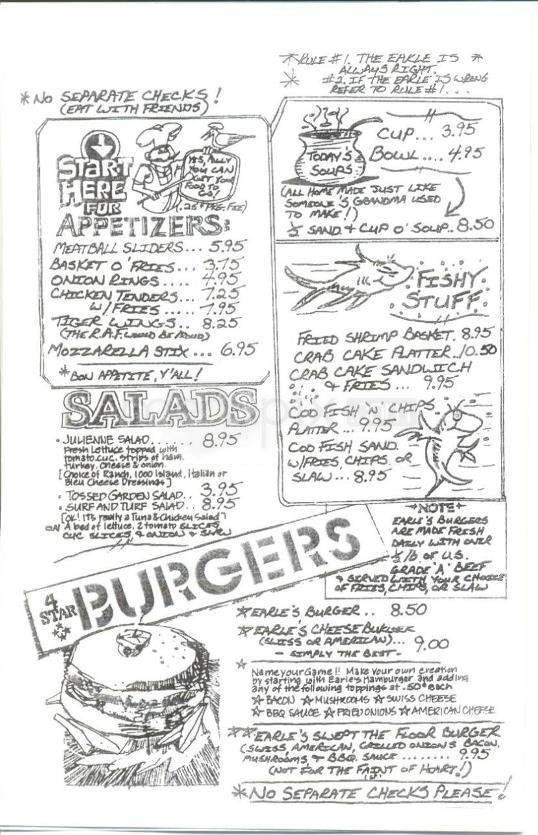 *RULE #1. THE EARLE IS *
ALWAYS RIGHT.
* #2. IF THE EARLE IS WRONG
REFER TO RULE #1...
*NO SEPARATE CHECKS!
(EAT WITH FRIENDS)
START
HERE
FOR
APPETIZERS:
YES, ALLY
YOU CAN
GET YOUR
FOOD TO
GO!
MEATBALL SLIDERS... 5.95
BASKET O' FRIES... 3.75
ONION RINGS.... 4.95
CHICKEN TENDERS... 7.25
W/FRIES..... 7.95
TIGER WINGS.. 8.25
(THE R.A.F. WOULD BE PROUD)
MOZZARELLA STIX... 6.95
*BON APPETITE, Y'ALL!
TODAY'S
SOUPS
CUP... 3.95
BOWL.... 4.95
(ALL HOME MADE JUST LIKE
SOMEONE'S GRANDMA USED
TO MAKE!)
½ SAND + CUP O' SOUP.. 8.50
FISHY
STUFF
FRIED SHRIMP BASKET. 8.95
CRAB CAKE PLATTER..10.50
CRAB CAKE SANDWICH
& FRIES... 9.95
COD FISH 'N' CHIPS
PLATTER... 9.95
COD FISH SAND.
W/FRIES, CHIPS, OR
SLAW... 8.95
SALADS
• JULIENNE SALAD....... 8.95
Fresh Lettuce topped with
tomato, cuc, strips of ham,
turkey, cheese & onion.
[Choice of Ranch, 1000 Island, Italian or
Bleu Cheese Dressings]
• TOSSED GARDEN SALAD.. 3.95
• SURF AND TURF SALAD.. 8.95
[OK! IT'S really a Tuna & Chicken Salad]
ON A bed of lettuce, 2 tomato SLICES,
CUC SLICES & ONION & SLAW
NOTE
EARLE'S BURGERS
ARE MADE FRESH
DAILY WITH OVER
½ lb OF U.S.
GRADE 'A' BEEF
& SERVED WITH YOUR CHOICE
OF FRIES, CHIPS, OR SLAW
4
STAR
BURGERS
*EARLE'S BURGER.. 8.50
*EARLE'S CHEESE BURGER
(SWISS OR AMERICAN)... 9.00
- SIMPLY THE BEST -
* Name your Game!! Make your own creation
by starting with Earle's Hamburger and adding
any of the following toppings at .50¢ each
☆ BACON ☆ MUSHROOMS ☆ SWISS CHEESE
☆ BBQ SAUCE ☆ FRIED ONIONS ☆ AMERICAN CHEESE
**EARLE'S SWEPT THE FLOOR BURGER
(SWISS, AMERICAN, GRILLED ONIONS, BACON,
MUSHROOMS & BBQ SAUCE ........ 9.95
(NOT FOR THE FAINT OF HEART!)
*NO SEPARATE CHECKS PLEASE!